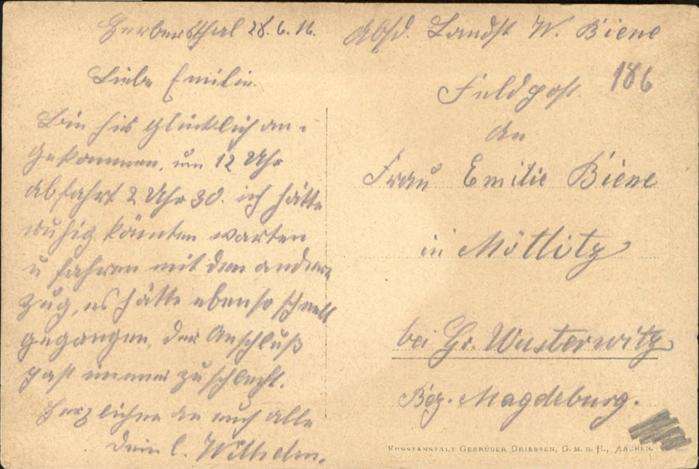 Herbersthal 28.6.16.
Liebe Emilie
Bin hir glücklich an-
gekommen, um 12 Uhr
abfahrt 2 Uhr 30. ich hätte
ruhig könnten warten
u fahren mit dem andern
zug, es hätte ebenso schnell
gegangen, der Anschluß
past immer zu schlecht.
Herzlichen an euch alle
dein l. Wilhelm.
Absd. Landst W. Biene
186
Feldpost
An
Frau Emilie Biene
in Möttlitz
bei Gr. Wusterwitz
Bez. Magdeburg.
KUNSTANSTALT GEBRÜDER DRIESSEN, G.M.B.H., AACHEN